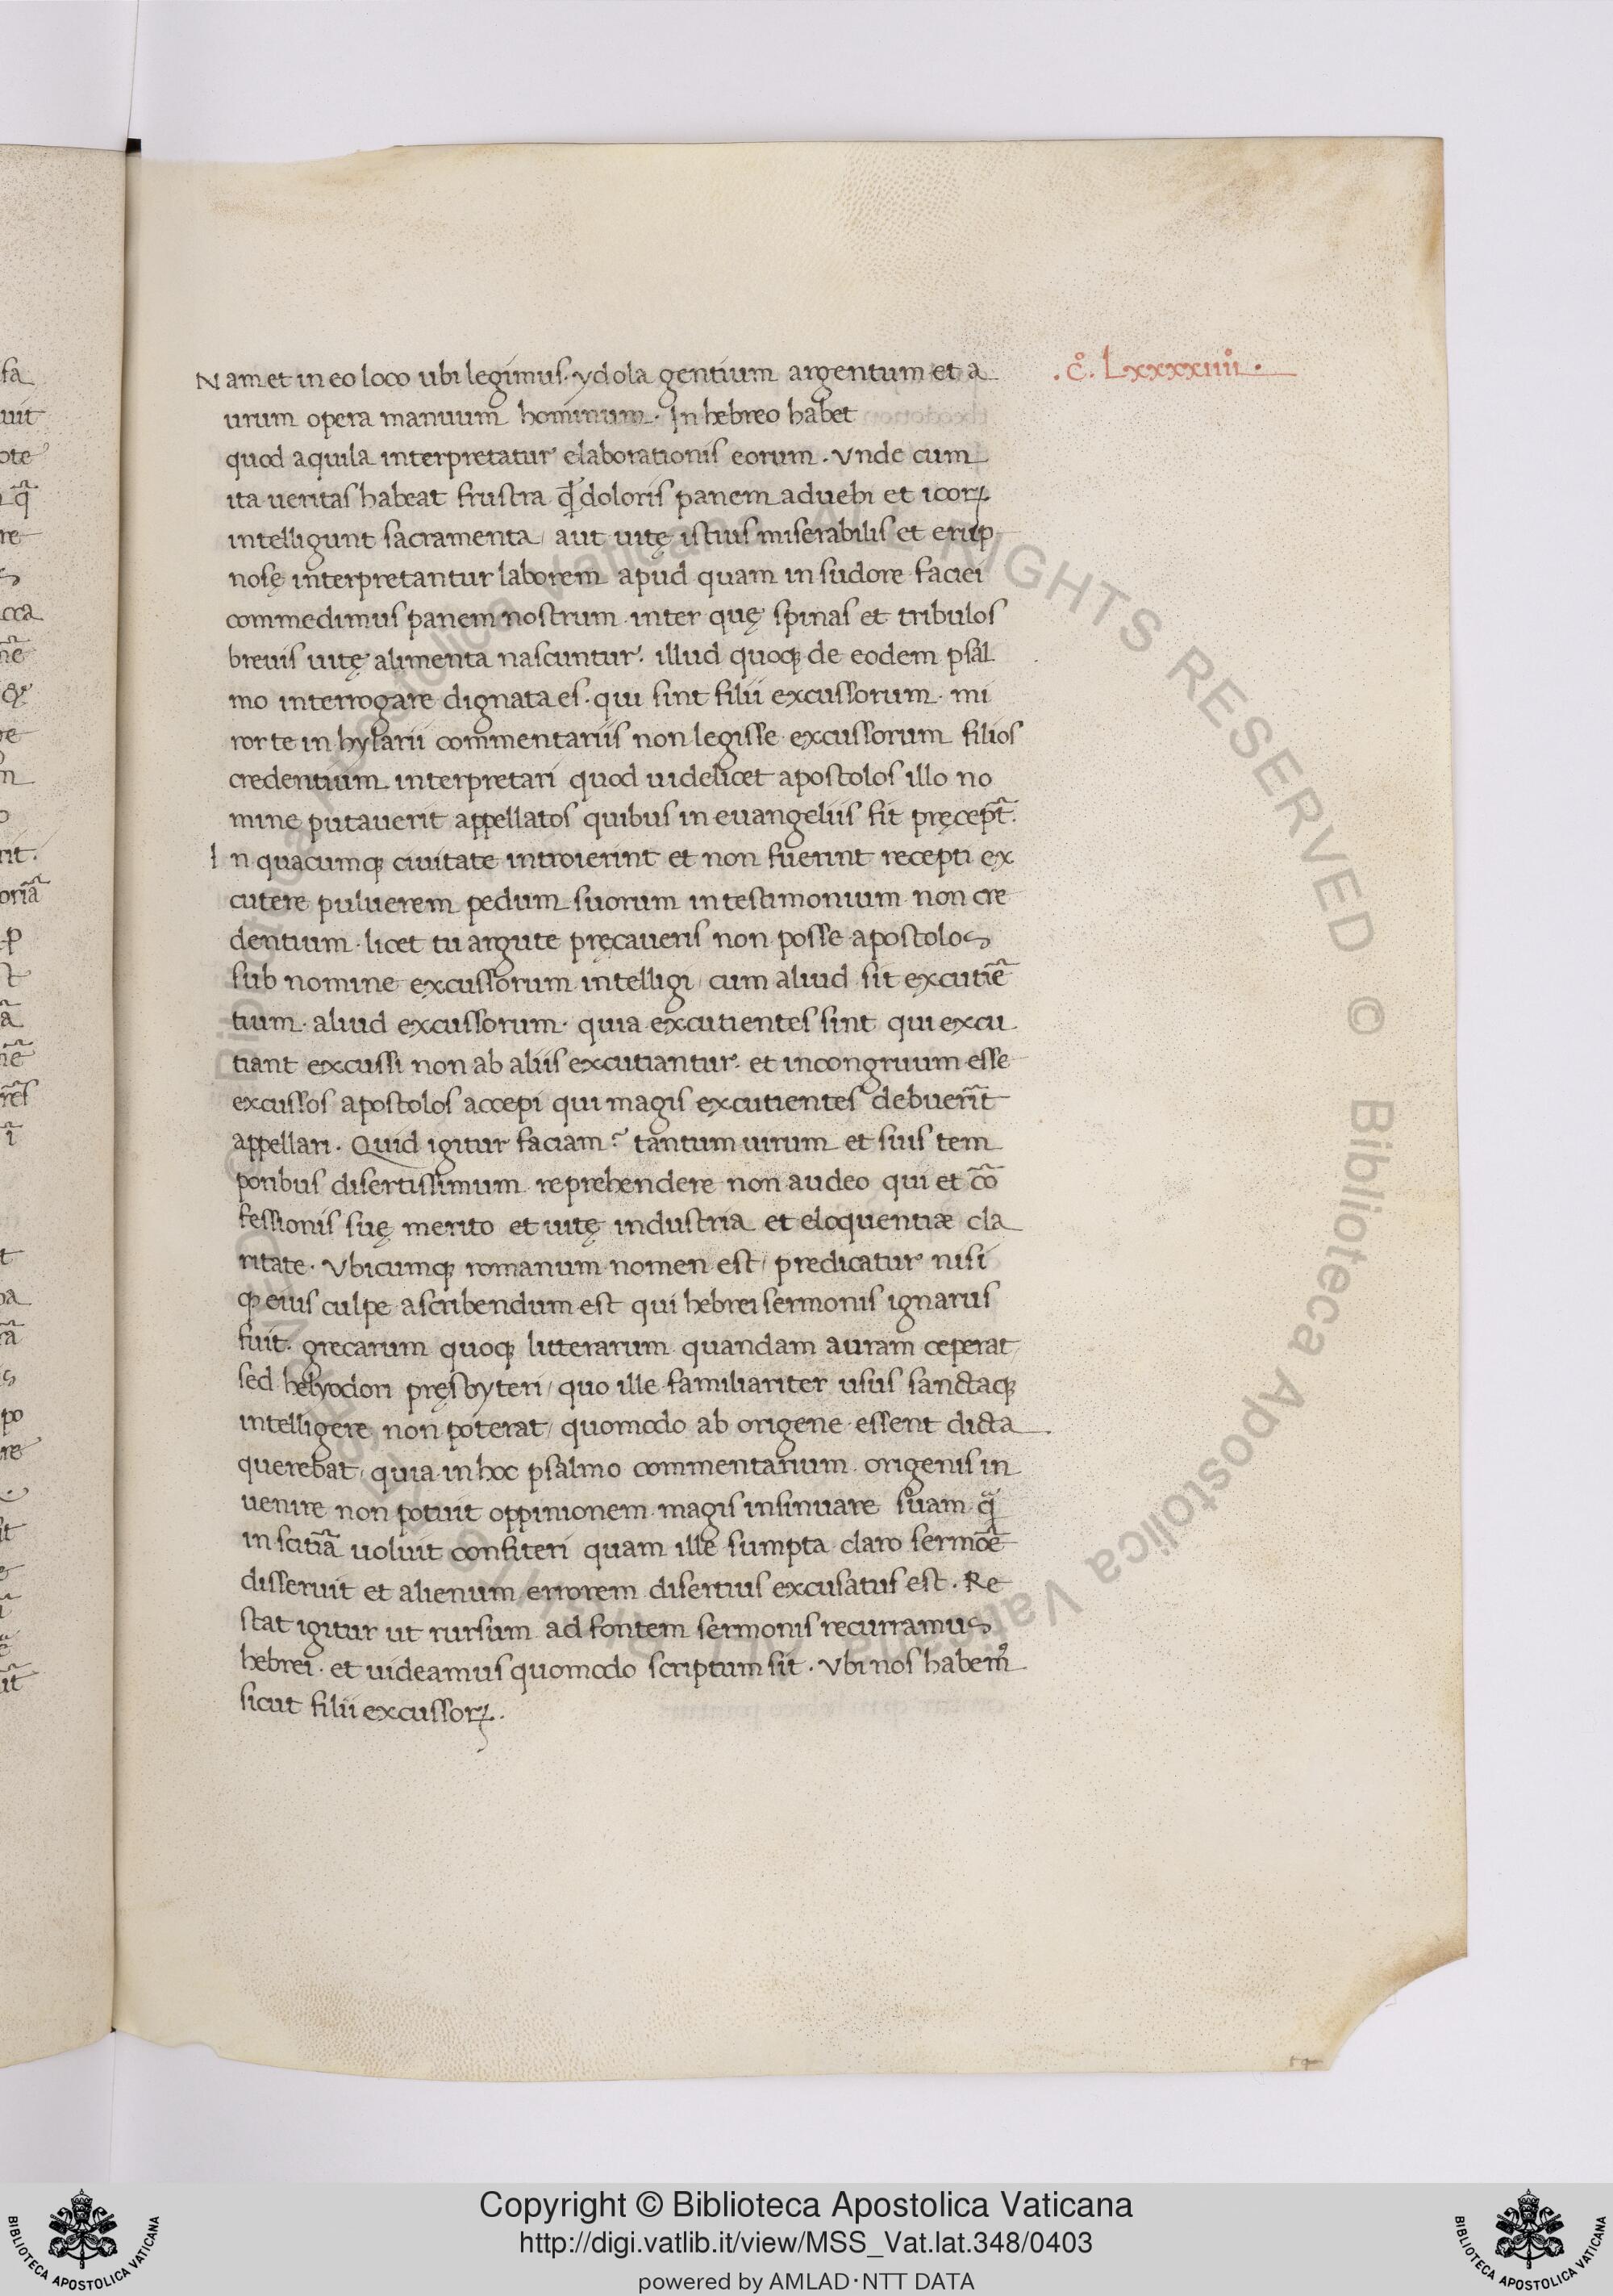 Nam et in eo loco ubi legimus · ydola gentium argentum et a
.c̊. Lxxxxiiii̊ .
urum opera manuum hominum · In hebreo habet
quod aquila interpretatur elaborationis eorum . Vnde cum
ita ueritas habeat frustra q̄d doloris panem ad uebi et icoꝝ
intelligunt sacramenta / aut uitę istius miserabilis et erup
nosę interpretantur laborem apud quam in sudore faciei
commedimus panem nostrum inter quę spinas et tribulos
breuis uitę alimenta nascuntur . illud quoqꝫ de eodem psal
mo interrogare dignata es . qui sint filii excussorum · mi
ror te in hylarii commentariis non legisse excussorum filios
credentium interpretari quod uidelicet apostolos illo no
mine putauerit appellatos quibus in euangeliis sit pręcept̄ .
In quacumqꝫ ciuitate introierint et non fuerint recepti ex
cutere puluerem pedum suorum in testimonium non cre
dentium · licet tu argute pręcaueris non posse apostolos
sub nomine excussorum intelligi / cum aliud sit excutiē
tium · aliud excussorum · quia excutientes sint qui excu
tiant excussi non ab aliis excutiantur · et incongruum esse
excussos apostolos accepi qui magis excutientes debuer̄it
appellari . Quid igitur faciam ? tantum uirum et suis tem
poribus disertissimum reprehendere non audeo qui et cō
fessionis suę merito et uitę industria et eloquentiæ cla
ritate · Vbicumqꝫ romanum nomen est / predicatur nisi
ꝙ eius culpe ascribendum est qui hebrei sermonis ignarus
fuit · grecarum quoqꝫ litterarum quandam auram ceperat /
sed helyodori pręsbyteri / quo ille familiariter usus sanctaqꝫ
intelligere non poterat / quomodo ab origene essent dicta
querebat / quia in hoc psalmo commentarium origenis in
uenire non potuit oppinionem magis insinuare suam q̄
inscitiā uoluit confiteri quam ille sumpta claro sermōe
disseruit et alienum errorem disertius excusatus est . Re
stat igitur ut rursum ad fontem sermonis recurramus
hebrei · et uideamus quomodo scriptum sit . Vbi nos habem⁹
sicut filii excussoꝝ .
Copyright © Biblioteca Apostolica Vaticana
http://digi.vatlib.it/view/MSS_Vat.lat.348/0403
powered by AMLAD·NTT DATA